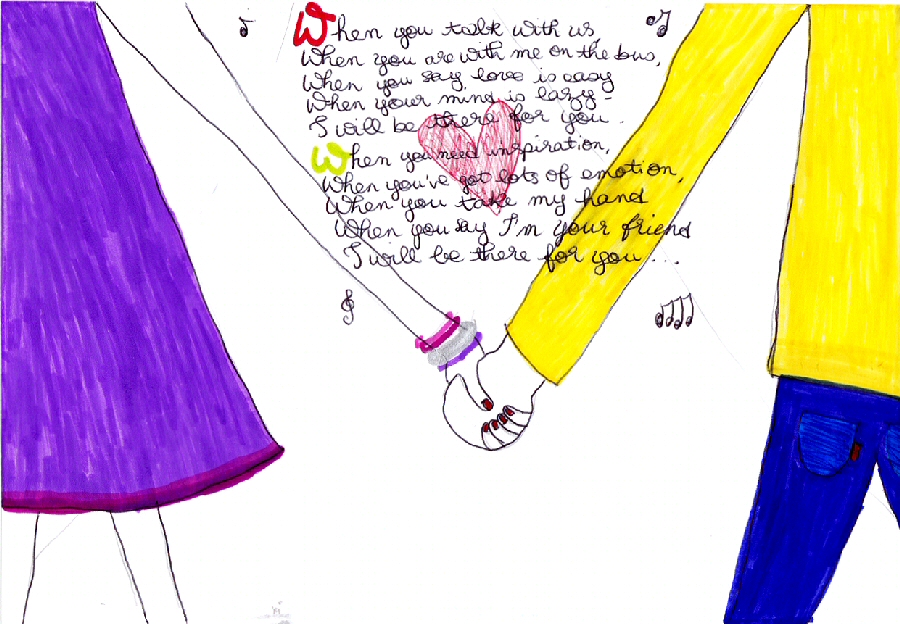 When you talk with us,
When you are with me on the bus,
When you say love is easy
When your mind is lazy -
I will be there for you.
When you need inspiration,
When you've got lots of emotion,
When you take my hand
When you say I'm your friend
I will be there for you...